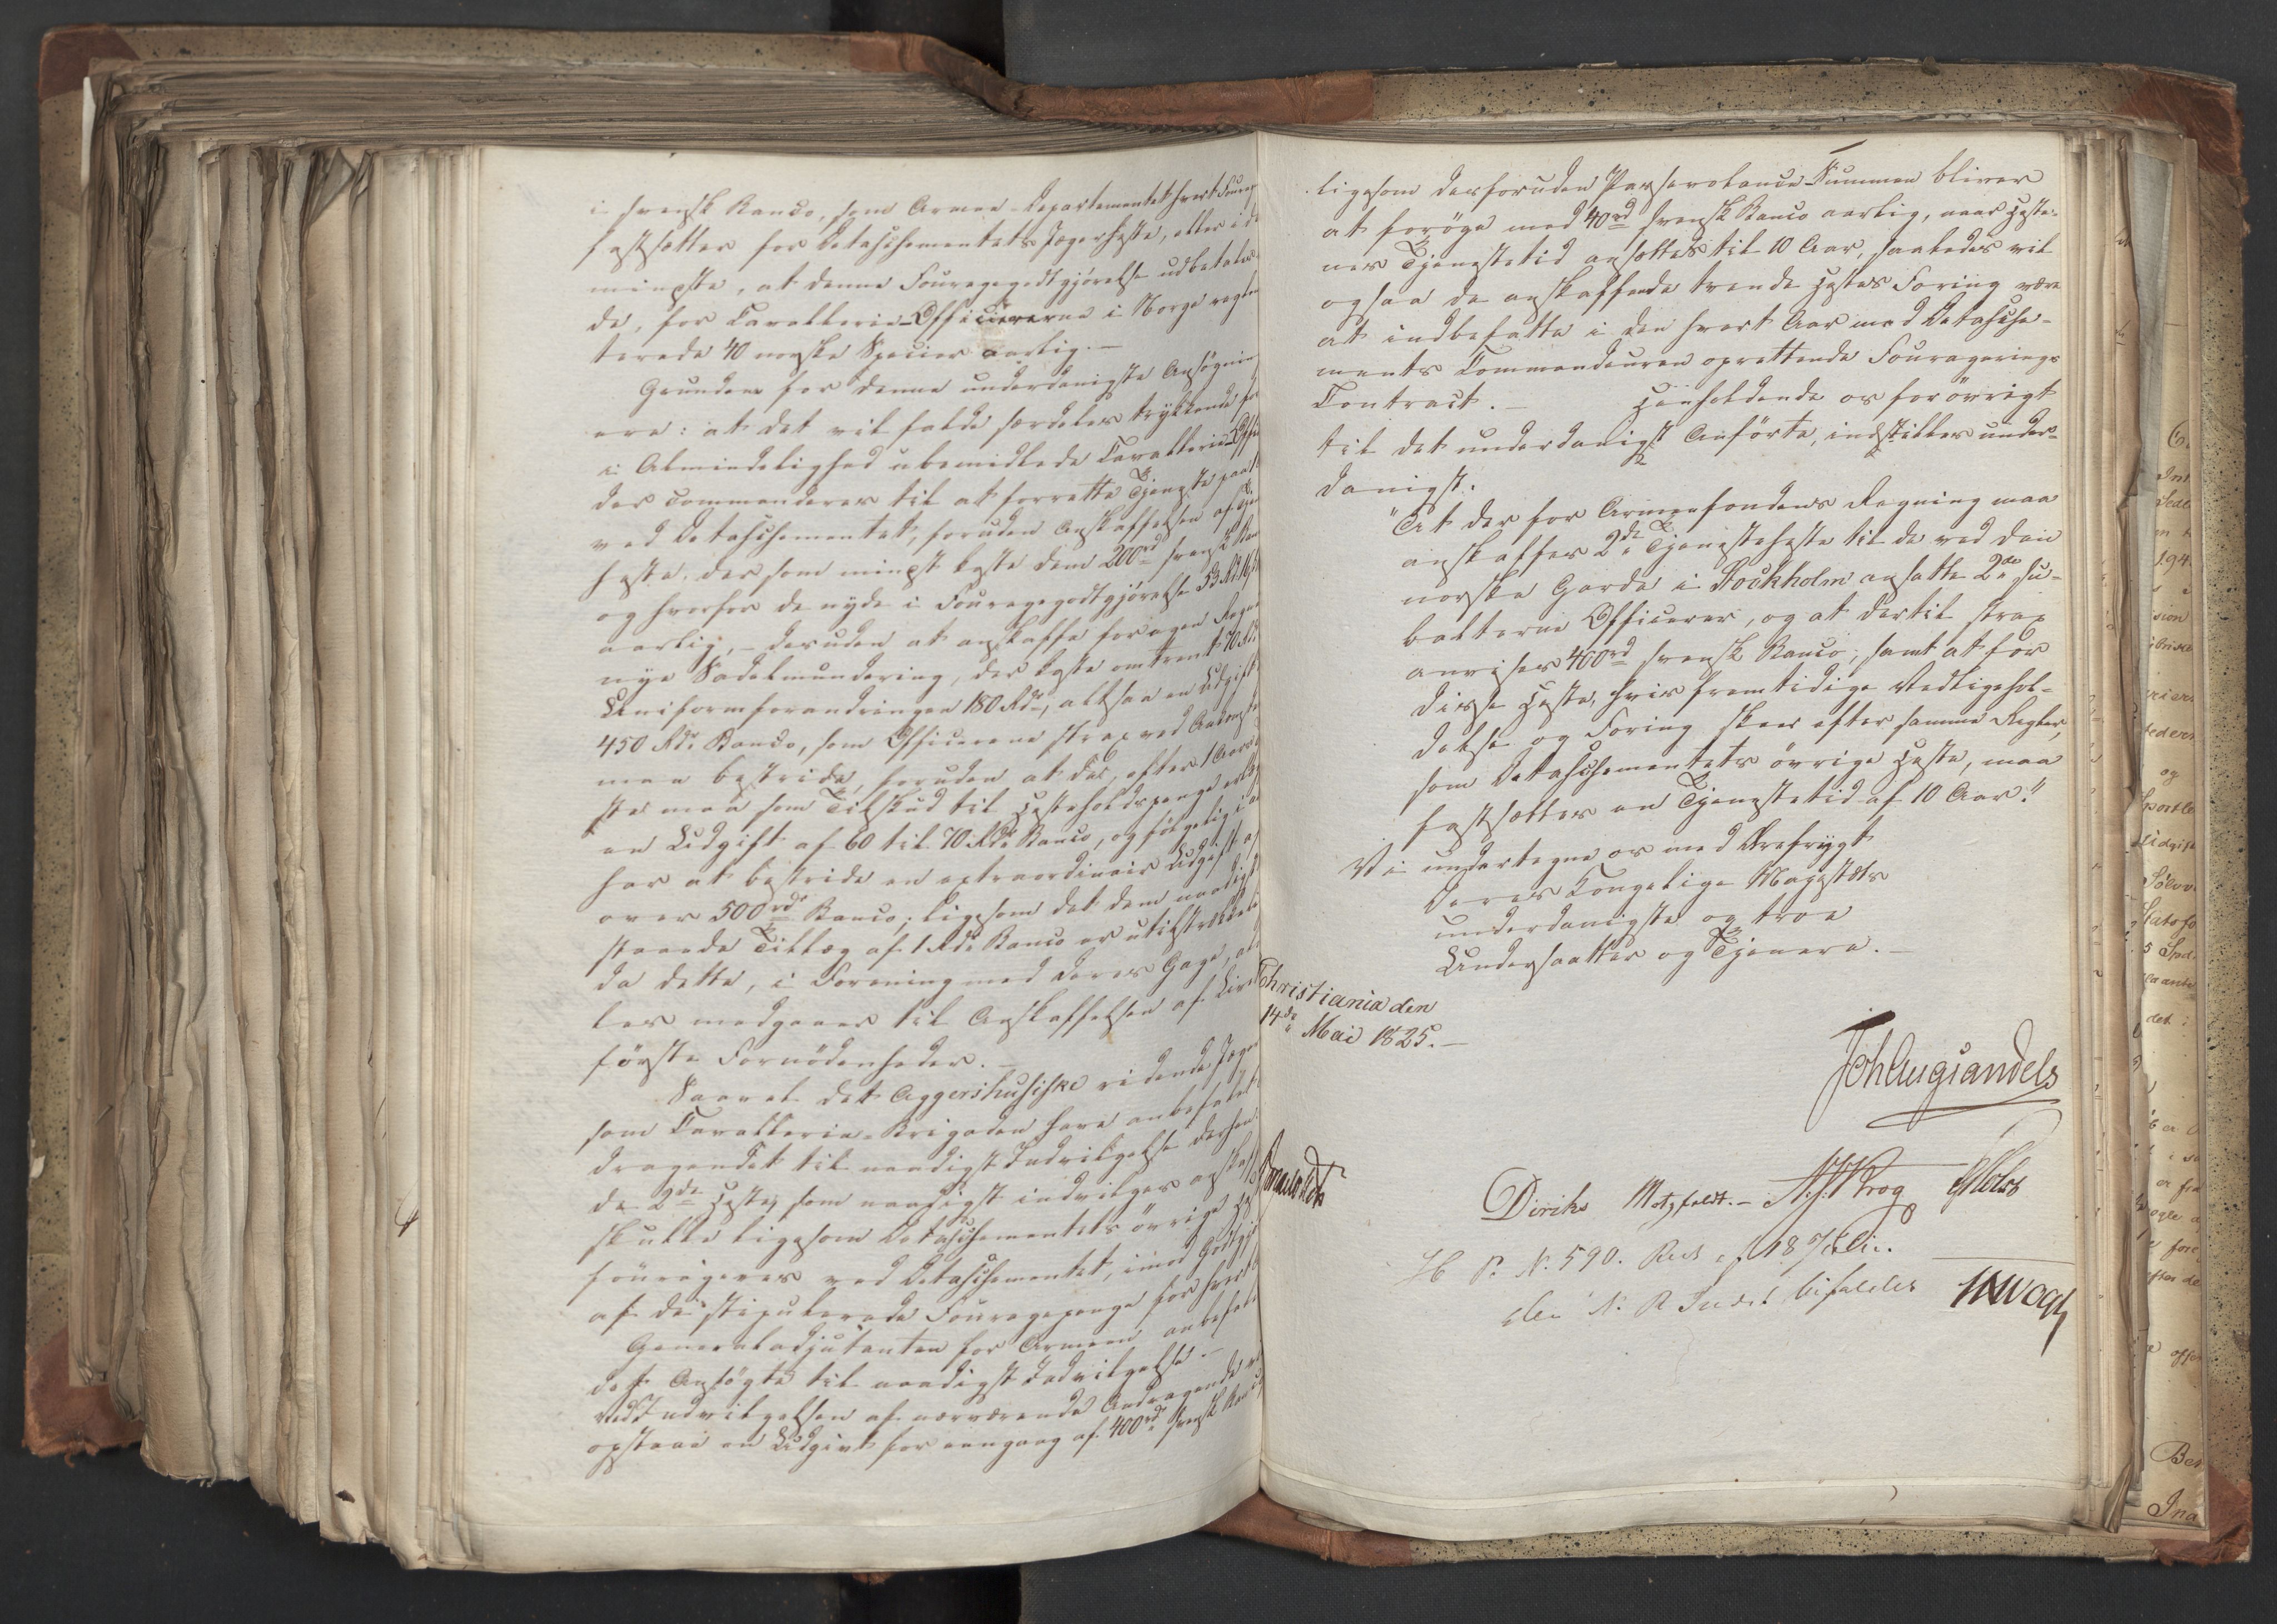 i svensk Banco, som Armee-Departementet hvert
fastsætter for Detaschementets Jægerheste, eller i det
mindste, at denne Fouragegodtgjørelse udbetales
de, for Cavallerie-Officiererne i Norge regle-
terede 40 norske Species aarlig.-
Grundene for denne underdanigste Ansøgning
ere: at det vil falde særdeles trykkende for
i Almindelighed ubemidlede Cavallerie-Offi
der commanderes til at forrette Tjeneste paa
ved Detaschementet, foruden Anskaffelsen af
heste, der som mindst koste dem 200rd svensk Ban
og hvorfor de nyde i Fouragegodtgjørelse 53 Rd 16
aarlig, - desuden at anskaffe for egen Regn
nye Sadelmundering, der koste omtrent 70 Rd
Uniformforandringen 180 Rdr, altsaa en Udgift
450 Rdr Banco, som Officererne strax ved Ankomsten
maa bestride, foruden at de, efter 1 Aars
ste maa som Tilskud til Hesteholdspenge
en Udgift af 60 til 70 Rdr Banco, og følgelig i
har at bestride en extraordinair Udgift af
over 500rdr Banco; ligesom det dem naadigst
staaede Tillæg af 1 Rdr Banco er utilstrækkeligt
da dette, i Forening med deres Gage,
les medgaaer til Anskaffelsen af Livets
første Fornødenheder.-
Saavel det Aggershusiske ridende Jæger
som Cavallerie-Brigaden have anbefalet
dragendet til naadigst Indvilgelse
de 2de Heste, som naadigst indvilges anskaff
skulle ligesom Detaschementets øvrige He
fourageres ved Detaschementet, imod Godtgj
af de stipulerede Fouragepenge for hver
Generaladjutanten for Armeen anbefaler
det Ansøgte til naadigst Indvilgelse.-
Ved Indvilgelsen af nærværende Andragende
opstaae en Udgivt for eengang af 400rdr svensk Banco
ligesom desforuden Perseverance-Summen bliver
at forøge med 40rd svensk Banco aarlig, naar Heste-
nes Tjenestetid ansættes til 10 Aar, saaledes vil
ogsaa de anskaffende tvende Hestes Foring være
at indbefatte i den hvert Aar med Detasche-
ments Commandeuren oprettende Fouragerings
Contract.- Henholdende os forøvrigt
til det underdanigst Anførte, indstilles under-
danigst:
"At der for Armeefondens Regning maa
anskaffes 2de Tjenesteheste til de ved den
norske Garde i Stockholm ansatte 2de Su-
balterne Officerer, og at dertil strax
anvises 400rd svensk Banco, samt at for
disse Heste, hvis fremtidige Vedligehol-
delse og Foring skeer efter samme Regler,
som Detaschementets øvrige Heste, maa
fastsættes en Tjenestetid af 10 Aar."
Vi undertegne os med Ærefrygt
Deres Kongelige Majestæts
underdanigste og troe
Undersaatter og Tjenere.-
Christiania den
14de Mai 1825.-
Joh Aug Sandels
Diriks Motzfeldt.- N. J. Krog P Holst
H P. N. 590.
den N. R Indst bifaldes